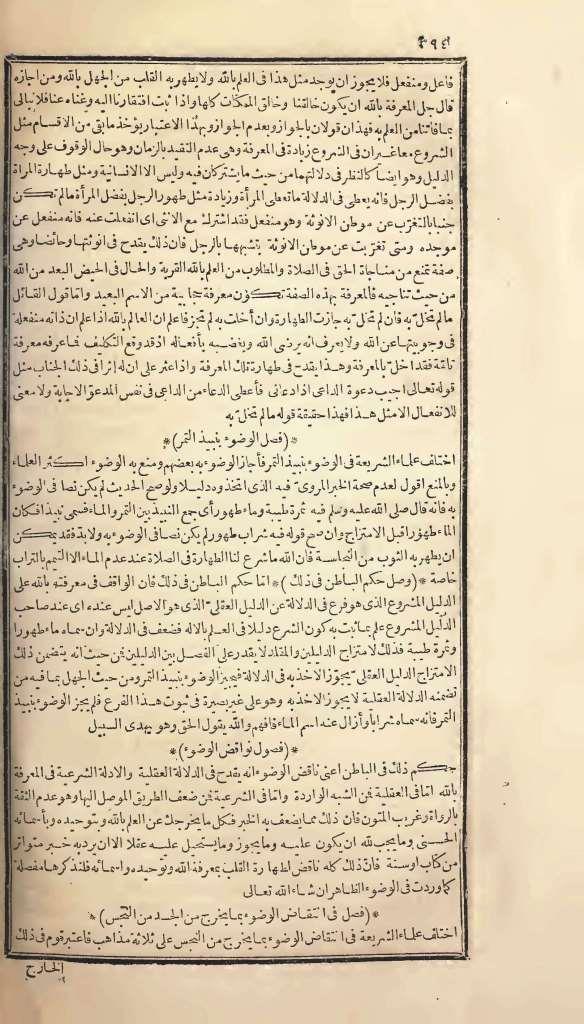 ٣٩٤
فاعل ومنفعل فلا يجوز ان يوجد مثل هذا فى العلم بالله ولا يطهر به القلب من الجهل بالله ومن اجازه
قال جل المعرفة بالله ان يكون خالقنا وخالق الممكنات كلها واذا ثبت افتقارنا اليه وغناه عنا فلا نبالى
بما فاتنا من العلم به فهذان قولان بالجواز وبعدم الجواز وبهذا الاعتبار يؤخذ ما بقى من الاقسام مثل
الشروع معا غير ان فى الشروع زيادة فى المعرفة وهى عدم التقيد بالزمان وهو حال الوقوف على وجه
الدليل وهو ايضا كالنظر فى دلالتهما من حيث ما يشتركان فيه وليس الا الانسانية ومثل طهارة المرأة
بفضل الرجل فانه يعطى فى الدلالة ما تعطى المرأة وزيادة مثل طهور الرجل بفضل المرأة مالم تكن
جنبا بالتغرب عن موطن الانوثة وهو منفعل فقد اشترك مع الانثى اى انفعلت عنه فانه منفعل عن
موجده ومتى تغربت عن موطن الانوثة بتشبهها بالرجل فان ذلك يقدح فى انوثتها وحائضا وهى
صفة تمنع من مناجاة الحق فى الصلاة والمطلوب من العلم بالله القربة والحال فى الحيض البعد من الله
من حيث تناجيه فالمعرفة بهذه الصفة تكون معرفة حجابية من الاسم البعيد واما قول القائل
مالم تخل به فان لم تخل به جازت الطهارة وان أخلت به لم تجز فاعلم ان العالم بالله اذا علم ان ذاته منفعلة
فى وجود عينها عن الله ولا يعرف انه يرضى الله ويغضبه بأفعاله اذ قد وقع التكليف فما عرفه معرفة
تامة فقد اخل بالمعرفة وهذا يقدح فى طهارة تلك المعرفة واذا عثر على ان له اثرا فى ذلك الجناب مثل
قوله تعالى اجيب دعوة الداعى اذا دعانى فأعطى الدعاء من الداعى فى نفس المدعو الاجابة ولا معنى
للانفعال الا مثل هذا فهذا حقيقة قوله مالم تخل به
*(فصل الوضوء بنبيذ التمر)*
اختلف علماء الشريعة فى الوضوء بنبيذ التمر فأجاز الوضوء به بعضهم ومنع به الوضوء اكثر العلماء
وبالمنع اقول لعدم صحة الخبر المروى فيه الذى اتخذوه دليلا ولو صح الحديث لم يكن نصا فى الوضوء
به فانه قال صلى الله عليه وسلم فيه تمرة طيبة وماء طهور أى جمع النبيذ بين التمر والماء فسمى نبيذا فكان
الماء طهورا قبل الامتزاج وان صح قوله فيه شراب طهور لم يكن نصا فى الوضوء به ولا بد فقد يمكن
ان يطهر به الثوب من النجاسة فان الله ما شرع لنا الطهارة فى الصلاة عند عدم الماء الا التيمم بالتراب
خاصة *(وصل حكم الباطن فى ذلك)* اما حكم الباطن فى ذلك فان الواقف فى معرفته بالله على
الدليل المشروع الذى هو فرع فى الدلالة عن الدليل العقلى الذى هو الاصل ليس عنده اى عند صاحب
الدليل المشروع علم بما ثبت به كون الشرع دليلا فى العلم بالاله فضعف فى الدلالة وان سماه ماء طهورا
وتمرة طيبة فذلك لامتزاج الدليلين والمقلد لا يقدر على الفصل بين الدليلين فمن حيث انه يتضمن ذلك
الامتزاج الدليل العقلى يجوز الاخذ به فى الدلالة فيجيز الوضوء بنبيذ التمر ومن حيث الجهل بما فيه من
تضمنه الدلالة العقلية لا يجوز الاخذ به وهو على غير بصيرة فى ثبوت هذا الفرع فلم يجز الوضوء بنبيذ
التمر فانه سماه شرابا وأزال عنه اسم الماء فافهم والله يقول الحق وهو يهدى السبيل
*(فصول نواقض الوضوء)*
حكم ذلك فى الباطن اعنى ناقض الوضوء انه يقدح فى الدلالة العقلية والادلة الشرعية فى المعرفة
بالله اما فى العقلية فمن الشبه الواردة واما فى الشرعية فمن ضعف الطريق الموصل اليها وهو عدم الثقة
بالرواة وغريب المتون فان ذلك مما يضعف به الخبر فكل ما يخرجك عن العلم بالله وبتوحيده وبأسمائه
الحسنى وما يجب لله ان يكون عليه وما يجوز وما يستحيل عليه عقلا الا ان يرد به خبر متواتر
من كتاب او سنة فان ذلك كله ناقض لطهارة القلب بمعرفة الله وتوحيده واسمائه فلنذكرها مفصلة
كما وردت فى الوضوء الظاهر ان شاء الله تعالى
*(فصل فى انتقاض الوضوء بما يخرج من الجسد من النجس)*
اختلف علماء الشريعة فى انتقاض الوضوء بما يخرج من النجس على ثلاثة مذاهب فاعتبر قوم فى ذلك
الخارج